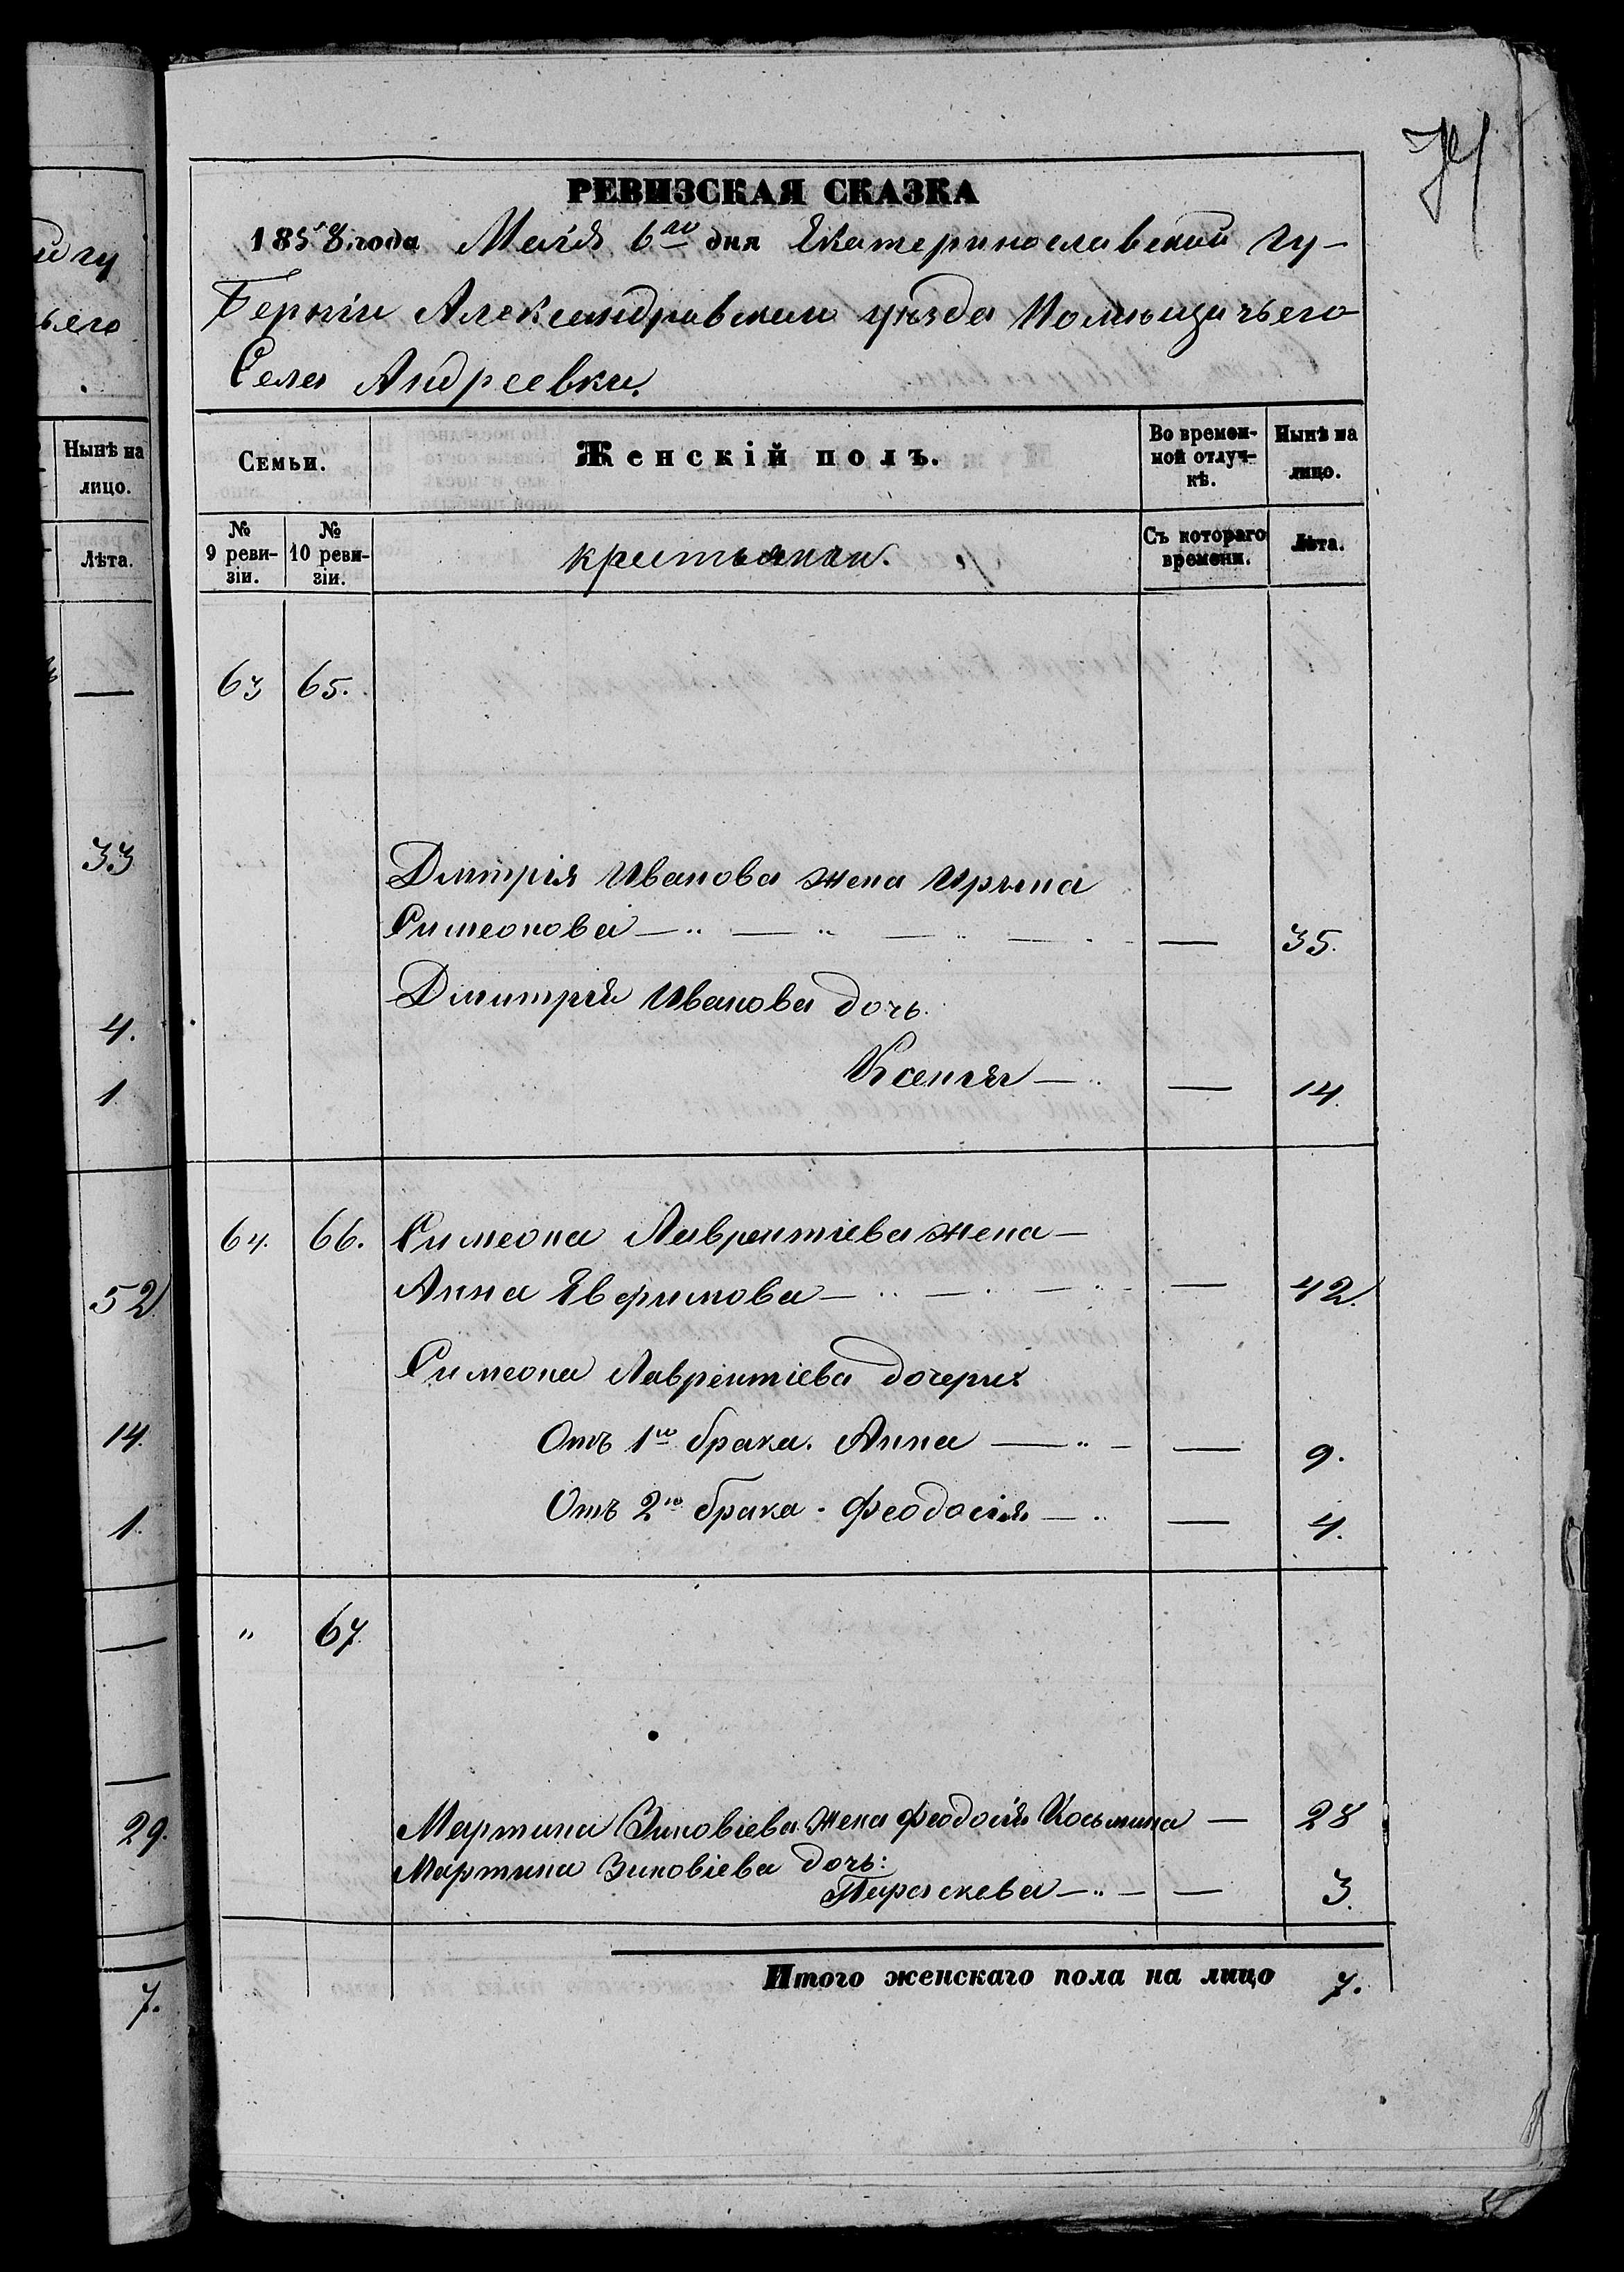 й гу
ьего
Нынѣ на
лицо.
Лѣта.
—
33
4.
1
52
14.
1.
—
—
29.
7.
РЕВИЗСКАЯ СКАЗКА
1858 года Маія 6го дня Екатеринославской гу-
берніи Александравскаго уѣзда Помѣщичьего
Села Андреевки.
Семьи.
Женскій полъ.
Во времен-
ной отлуч-
кѣ.
Нынѣ на
лицо.
№
9 реви-
зіи.
№
10 реви-
зіи.
крестьянки.
Съ котораго
времени.
Лѣта.
63 65.
Дмитрія Иванова жена Ирина
Симеонова — „ — „ — „ — — 35.
Дмитрія Иванова дочь.
Ксенія — „ — 14.
64. 66. Симеона Лаврентіева жена —
Анна Ефимова — „ — „ — „ — 42.
Симеона Лаврентіева дочери:
Отъ 1го брака. Анна — „ — — 9.
Отъ 2го брака - Феодосія — „ — 4.
„ 67
Мартина Зиновіева жена Феодосія Косьмина — 28
Мартина Зиновіева дочь:
Параскева — „ — — 3.
Итого женскаго пола на лицо 7.